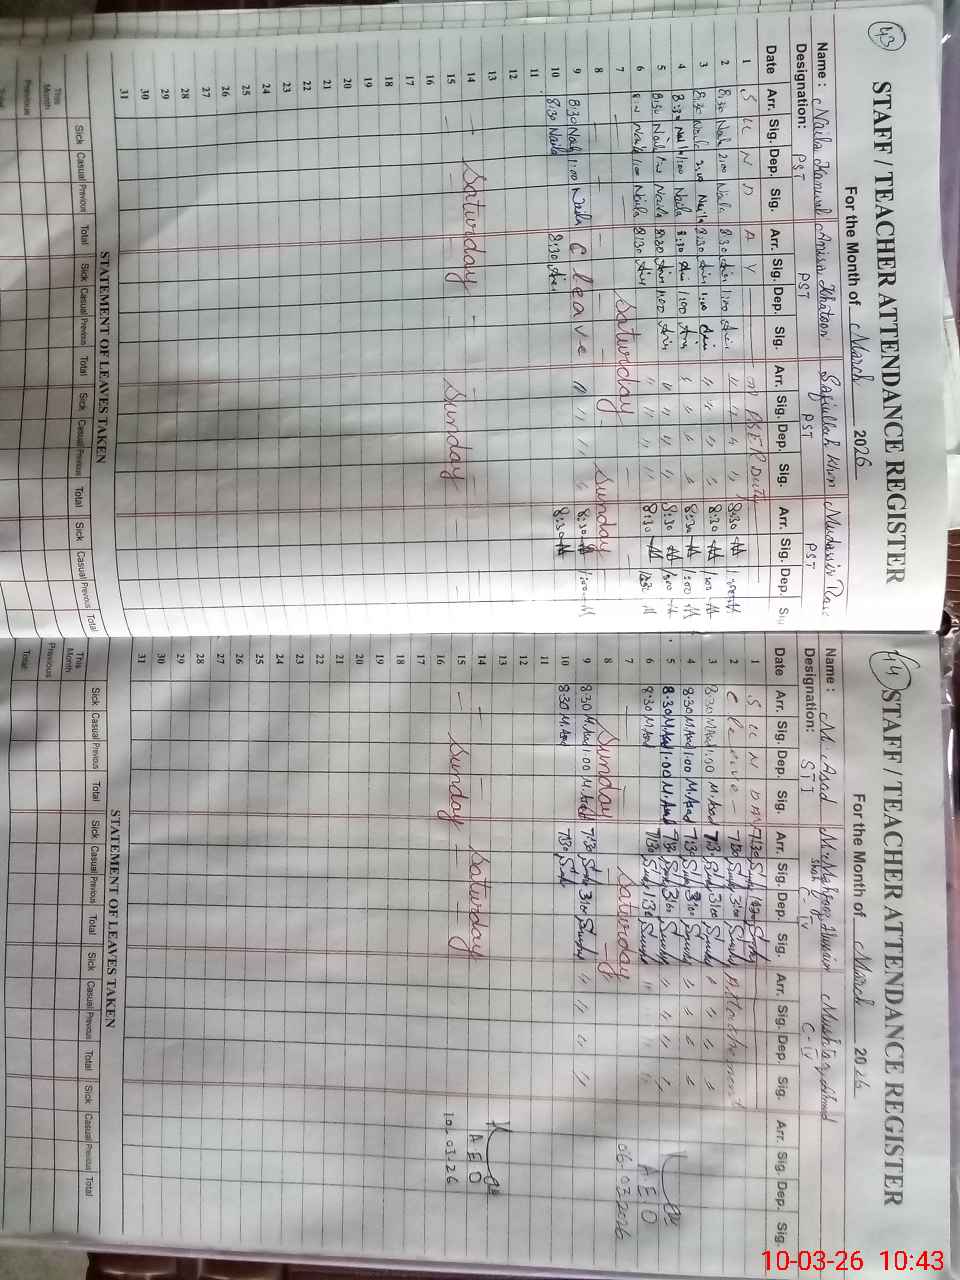 43
STAFF / TEACHER ATTENDANCE REGISTER
For the Month of March 2026
Name : Naila Kanwal Anisa Khatoon Safiullah Khan Mudassir
Designation: PST PST PST PST
Date Arr. Sig. Dep. Sig. Arr. Sig. Dep. Sig. Arr. Sig. Dep. Sig. Arr. Sig. Dep.
1 S U N D A Y
2 8:30 Naila 2:00 Naila 8:30 Anis 1:00 Anis " " " " 8:30
3 8:30 Naila 2:00 Naila 8:30 Anis 1:00 Anis " " " " 8:30 1:00
4 8:30 Naila 1:00 Naila 8:30 Anis 1:00 Anis " " " " 8:30 1:00
5 8:30 Naila 1:00 Naila 8:30 Anis 1:00 Anis " " " " 8:30 1:00
6 8:30 Naila 1:00 Naila 8:30 Anis " " " " 8:30
7 Saturday
8 Sunday
9 8:30 Naila 1:00 Naila C leave " " " 8:30 1:00
10 8:30 Naila 8:30 Anis 8:30
11
12
13
14 Saturday
15 Sunday
16
17
18
19
20
21
22
23
24
25
26
27
28
29
30
31
STATEMENT OF LEAVES TAKEN
Sick Casual Previous Total Sick Casual Previous Total Sick Casual Previous Total Sick Casual Previous Total
This Month
Previous
Total
44
STAFF / TEACHER ATTENDANCE REGISTER
For the Month of March 2026
Name : M. Asad M. Mahfooz Hussain Shah Mushtaq Ahmad
Designation: STI C-IV C-IV
Date Arr. Sig. Dep. Sig. Arr. Sig. Dep. Sig. Arr. Sig. Dep. Sig. Arr. Sig. Dep. Sig.
1 S U N DAY 7:30
2 C leave 7:30 3:00 Attachment
3 8:30 M.Asad 1:00 M.Asad 7:30 3:00 " " "
4 8:30 M.Asad 1:00 M.Asad 7:30 3:00 " " "
5 8:30 M.Asad 1:00 M.Asad 7:30 3:00 " " "
6 8:30 M.Asad 7:30 1:30 " " " A E O
7 Saturday 06.03.2026
8 Sunday
9 8:30 M.Asad 1:00 M.Asad 7:30 3:00 " " "
10 8:30 M.Asad 7:30
11
12
13
14 Saturday A E O
15 Sunday 10.03.26
16
17
18
19
20
21
22
23
24
25
26
27
28
29
30
31
STATEMENT OF LEAVES TAKEN
Sick Casual Previous Total Sick Casual Previous Total Sick Casual Previous Total Sick Casual Previous Total
This Month
Previous
Total
10-03-26 10:43